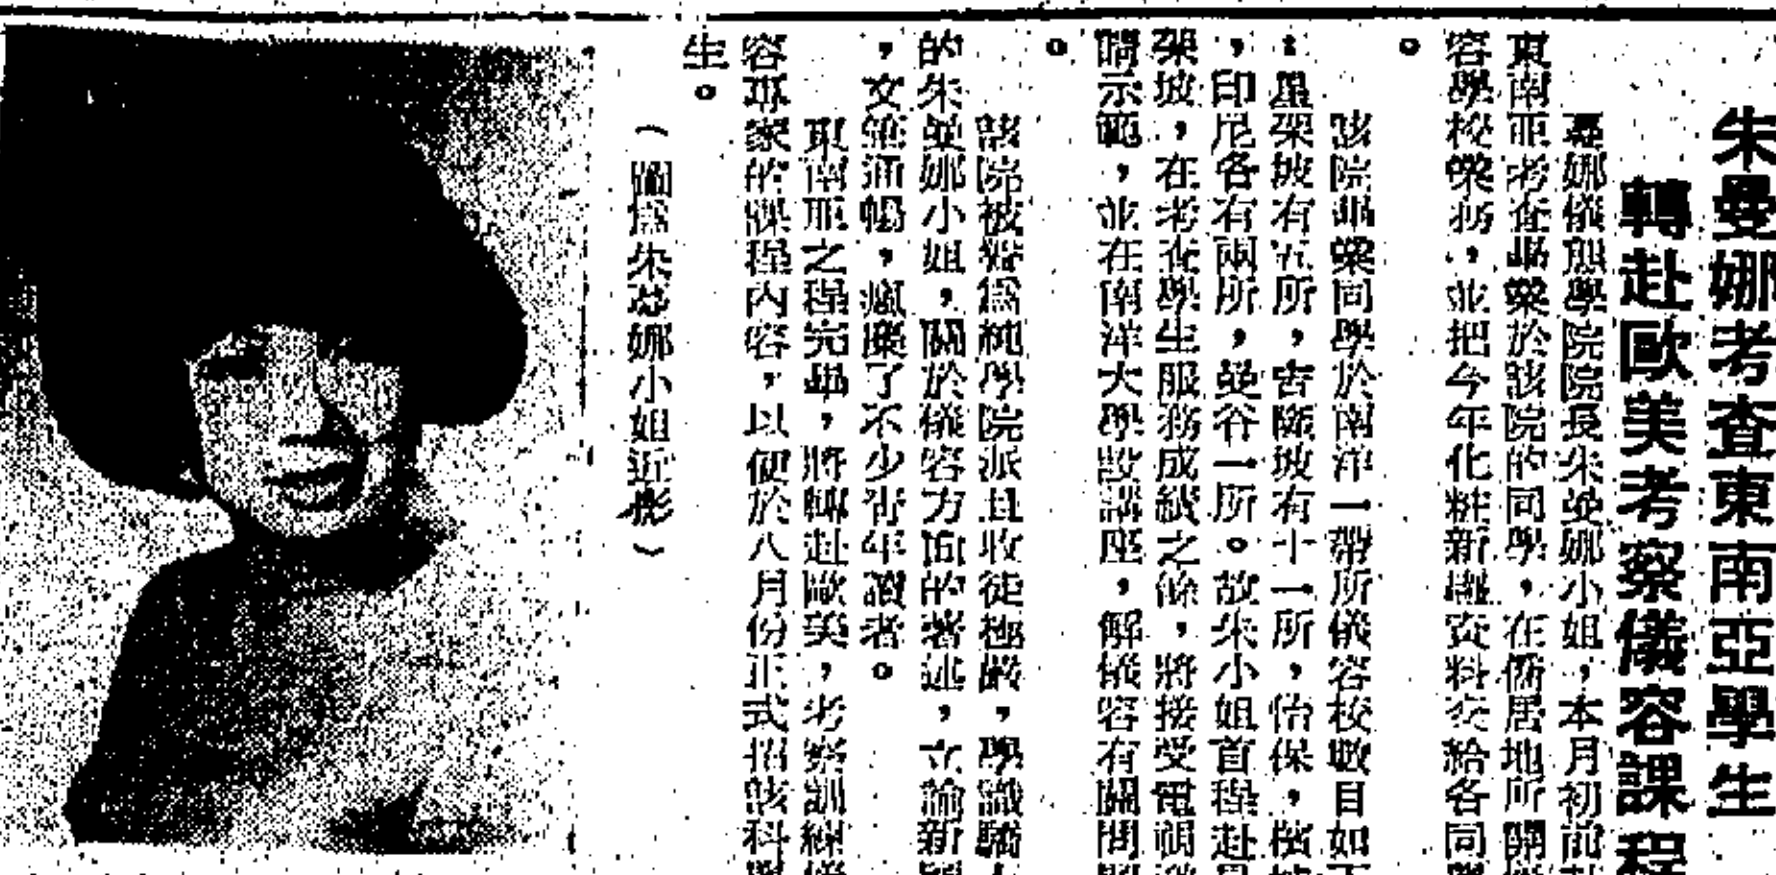 朱曼娜考查東南亞學生
轉赴歐美考察儀容課程
曼娜儀態學院院長朱曼娜小姐，本月初前
東南亞考查畢業於該院的同學，在僑居地所開
容學校業務，並把今年化粧新趨資料交給各同
。
該院畢業同學於南洋一帶所儀容校數目如下
：星架坡有五所，吉隆坡有十一所，怡保，檳
，印尼各有兩所，曼谷一所。故朱小姐首程赴星
架坡，在考查學生服務成績之餘，將接受電視邀
請示範，並在南洋大學設講座，解儀容有關問
。
該院被譽為純學院派且收徒極嚴，學識驕人
的朱曼娜小姐，關於儀容方面的著述，立論新穎
，文筆通暢，瘋靡了不少青年讀者。
東南亞之程完畢，將轉赴歐美，考察訓練儀
容專家的課程內容，以便於八月份正式招該科學
生。
（圖為朱曼娜小姐近影）